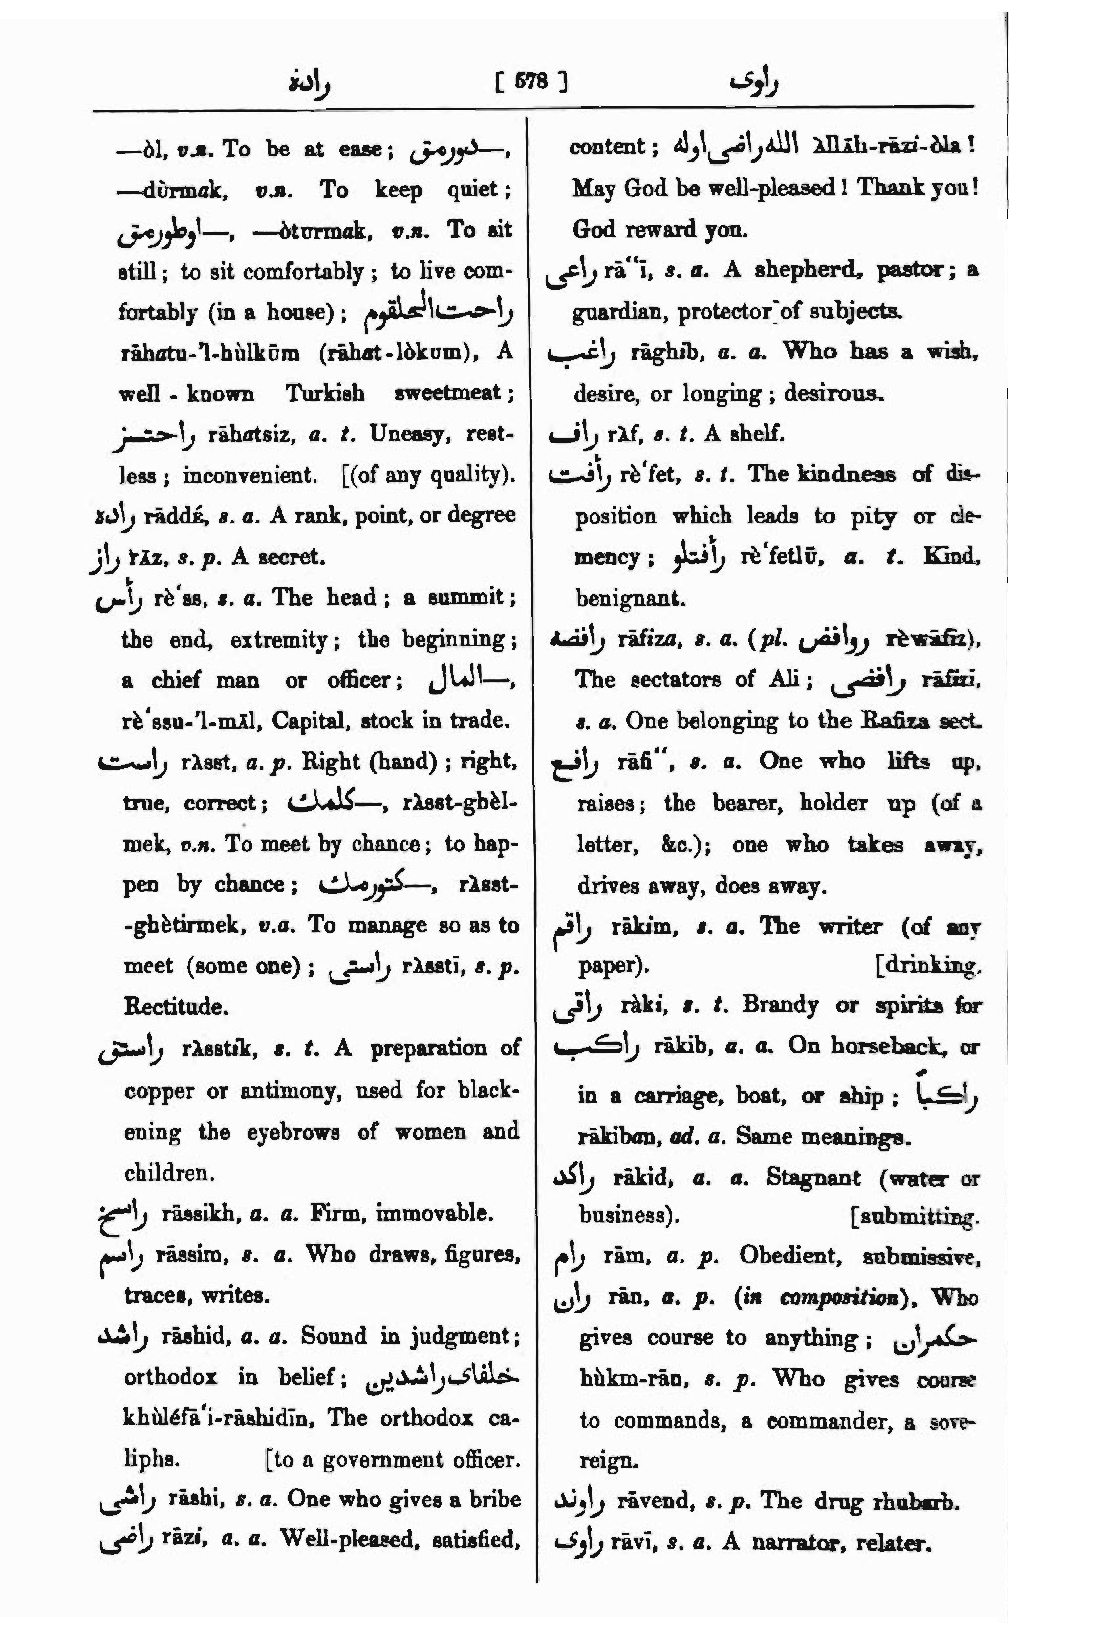 رادة [ 578 ] راوی
—òl, v.n. To be at ease; —دورمق,
—dùrmak, v.n. To keep quiet;
—اوطورمق, —òturmak, v.n. To sit
still; to sit comfortably; to live com-
fortably (in a house); راحت الحلقوم
rāhatu-'l-hùlkūm (rāhat-lòkum), A
well-known Turkish sweetmeat;
راحتسز rāhatsiz, a. t. Uneasy, rest-
less; inconvenient. [(of any quality).
رادة rāddé, s. a. A rank, point, or degree
راز rāz, s. p. A secret.
رأس rè'ss, s. a. The head; a summit;
the end, extremity; the beginning;
a chief man or officer; —المال,
rè'ssu-'l-māl, Capital, stock in trade.
راست ràsst, a. p. Right (hand); right,
true, correct; —كلمك, ràsst-ghèl-
mek, v.n. To meet by chance; to hap-
pen by chance; —كتورمك, ràsst-
-ghètirmek, v.a. To manage so as to
meet (some one); راستی ràsstī, s. p.
Rectitude.
راستق ràsstík, s. t. A preparation of
copper or antimony, used for black-
ening the eyebrows of women and
children.
راسخ rāssikh, a. a. Firm, immovable.
راسم rāssim, s. a. Who draws, figures,
traces, writes.
راشد rāshid, a. a. Sound in judgment;
orthodox in belief; خلفای راشدین
khùléfā'i-rāshidīn, The orthodox ca-
liphs. [to a government officer.
راشی rāshi, s. a. One who gives a bribe
راضی rāzi, a. a. Well-pleased, satisfied,
content; الله راضی اوله àllāh-rāzi-òla!
May God be well-pleased! Thank you!
God reward you.
راعی rā“ī, s. a. A shepherd, pastor; a
guardian, protector of subjects.
راغب rāghib, a. a. Who has a wish,
desire, or longing; desirous.
راف ràf, s. t. A shelf.
رأفت rè'fet, s. t. The kindness of dis-
position which leads to pity or cle-
mency; رأفتلو rè'fetlū, a. t. Kind,
benignant.
رافضه rāfiza, s. a. (pl. روافض rèwāfiz),
The sectators of Ali; رافضی rāfizi,
s. a. One belonging to the Rafiza sect.
رافع rāfi“, s. a. One who lifts up,
raises; the bearer, holder up (of a
letter, &c.); one who takes away,
drives away, does away.
راقم rākim, s. a. The writer (of any
paper). [drinking.
راقی ràki, s. t. Brandy or spirits for
راكب rākib, a. a. On horseback, or
in a carriage, boat, or ship; راكباً
rākiban, ad. a. Same meanings.
راكد rākid, a. a. Stagnant (water or
business). [submitting.
رام rām, a. p. Obedient, submissive,
ران rān, a. p. (in composition), Who
gives course to anything; حكمران
hùkm-rān, s. p. Who gives course
to commands, a commander, a sove-
reign.
راوند rāvend, s. p. The drug rhubarb.
راوی rāvī, s. a. A narrator, relater.